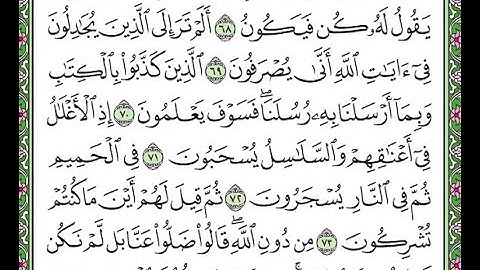 يَقُولُ لَهُۥ كُن فَيَكُونُ ٦٨ أَلَمْ تَرَ إِلَى ٱلَّذِينَ يُجَٰدِلُونَ
فِىٓ ءَايَٰتِ ٱللَّهِ أَنَّىٰ يُصْرَفُونَ ٦٩ ٱلَّذِينَ كَذَّبُوا۟ بِٱلْكِتَٰبِ
وَبِمَآ أَرْسَلْنَا بِهِۦ رُسُلَنَا ۖ فَسَوْفَ يَعْلَمُونَ ٧٠ إِذِ ٱلْأَغْلَٰلُ
فِىٓ أَعْنَٰقِهِمْ وَٱلسَّلَٰسِلُ يُسْحَبُونَ ٧١ فِى ٱلْحَمِيمِ
ثُمَّ فِى ٱلنَّارِ يُسْجَرُونَ ٧٢ ثُمَّ قِيلَ لَهُمْ أَيْنَ مَا كُنتُمْ
تُشْرِكُونَ ٧٣ مِن دُونِ ٱللَّهِ ۖ قَالُوا۟ ضَلُّوا۟ عَنَّا بَل لَّمْ نَكُن